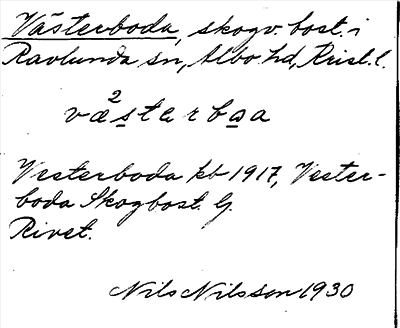 Västerboda, skogv. bost. i
Ravlunda sn, Albo hd, Krist. l.
væ²sterboa
Vesterboda kb 1917, Vester-
boda Skogbost. G.
Rivet.
Nils Nilsson 1930